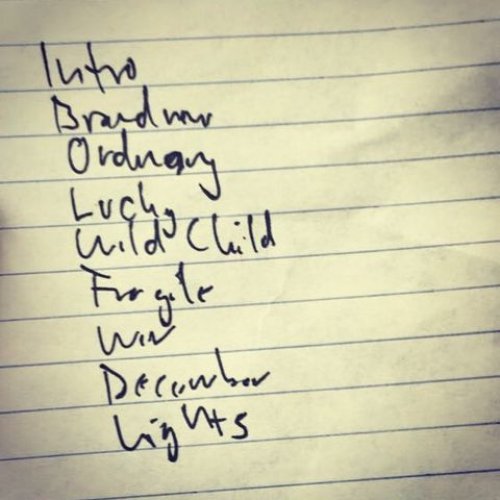 Intro
Brandnew
Ordinary
Lucky
Wild Child
Fragile
Win
December
Lights